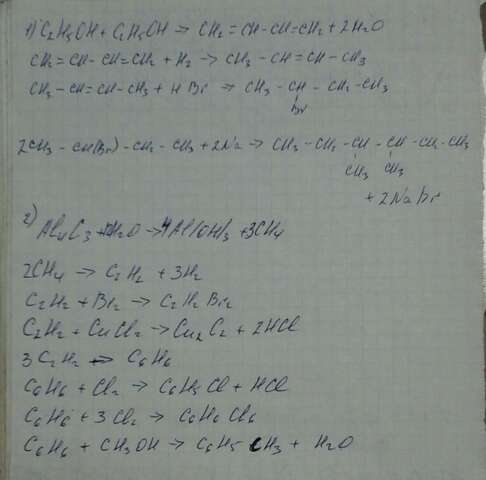 1) C2H5OH + C2H5OH → CH2 = CH - CH = CH2 + 2H2O
CH2 = CH - CH = CH2 + H2 → CH3 - CH = CH - CH3
CH3 - CH = CH - CH3 + HBr → CH3 - CH - CH2 - CH3
Br
2CH3 - CH(Br) - CH2 - CH3 + 2Na → CH3 - CH2 - CH - CH - CH2 - CH3
CH3 CH3
+ 2NaBr
2) Al4C3 + 12H2O → 4Al(OH)3 + 3CH4
2CH4 → C2H2 + 3H2
C2H2 + Br2 → C2H2Br2
C2H2 + CuCl2 → Cu2C2 + 2HCl
3C2H2 → C6H6
C6H6 + Cl2 → C6H5Cl + HCl
C6H6 + 3Cl2 → C6H6Cl6
C6H6 + CH3OH → C6H5CH3 + H2O